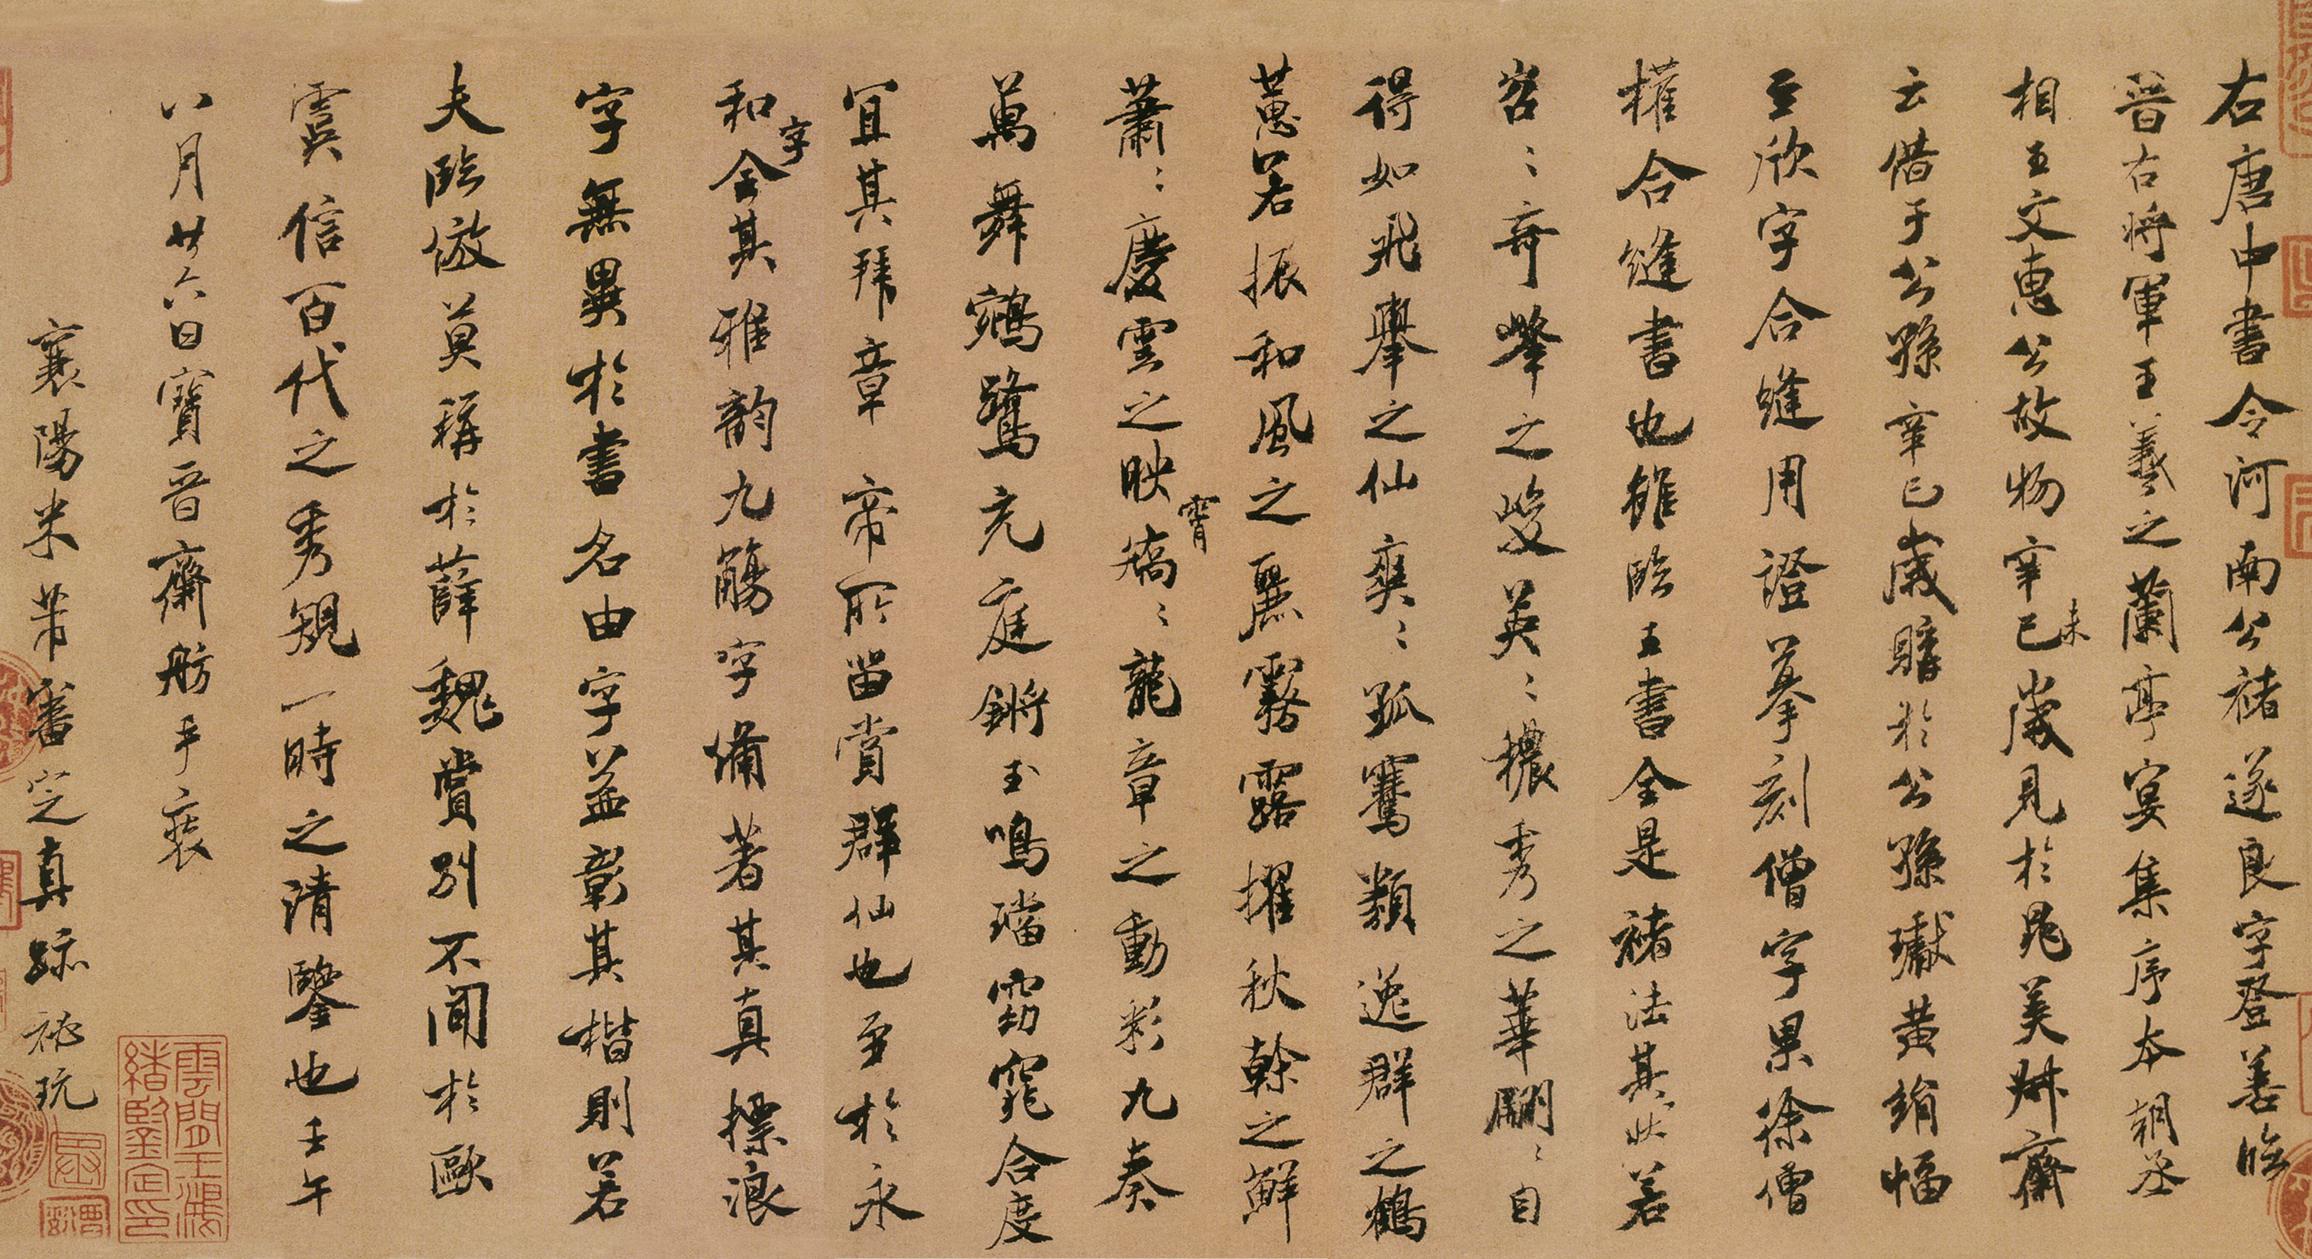 右唐中書令河南公褚遂良字登善臨
晉右將軍王羲之蘭亭宴集序本朝丞
相王文惠公故物辛巳未歲見於晁美叔齋
云借于公孫辛巳歲購於公孫瓛黃絹幅
至欣字合縫用證摹刻僧字果徐僧
權合縫書也雖臨王書全是褚法其狀若
岩〻奇峰之峻英〻穠秀之華翩〻自
得如飛舉之仙爽〻孤騫類逸群之鶴
蕙若振和風之麗霧露擢秋幹之鮮
蕭〻慶雲之映霄矯〻龍章之動彩九奏
萬舞鵷鷺充庭鏘玉鳴璫窈窕合度
宜其拜章帝所留賞群仙也至於永
和字全其雅韵九觴字備著其真標浪
字無異於書名由字益彰其楷則若
夫臨倣莫稱於薛魏賞別不聞於歐
虞信百代之秀規一時之清鑒也壬午
八月廿六日寶晉齋舫手裝
襄陽米芾審定真跡秘玩
雲間王鴻
緒鑒定印